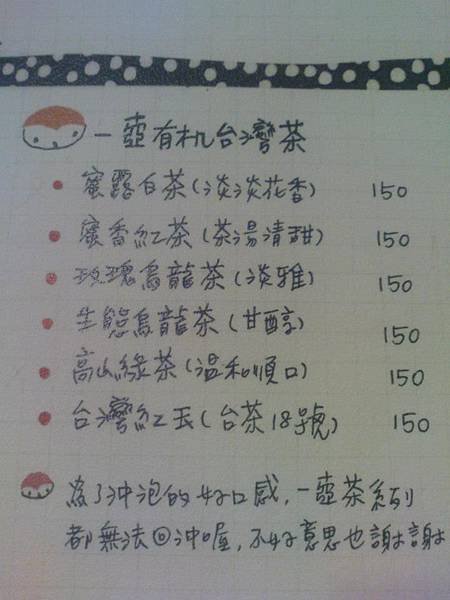 一壺有机台灣茶
蜜露白茶(淡淡花香) 150
蜜香紅茶(茶湯清甜) 150
玫瑰烏龍茶(淡雅) 150
生態烏龍茶(甘醇) 150
高山綠茶(溫和順口) 150
台灣紅玉(台茶18號) 150
為了沖泡的好口感,一壺茶系列
都無法回沖喔,不好意思也謝謝